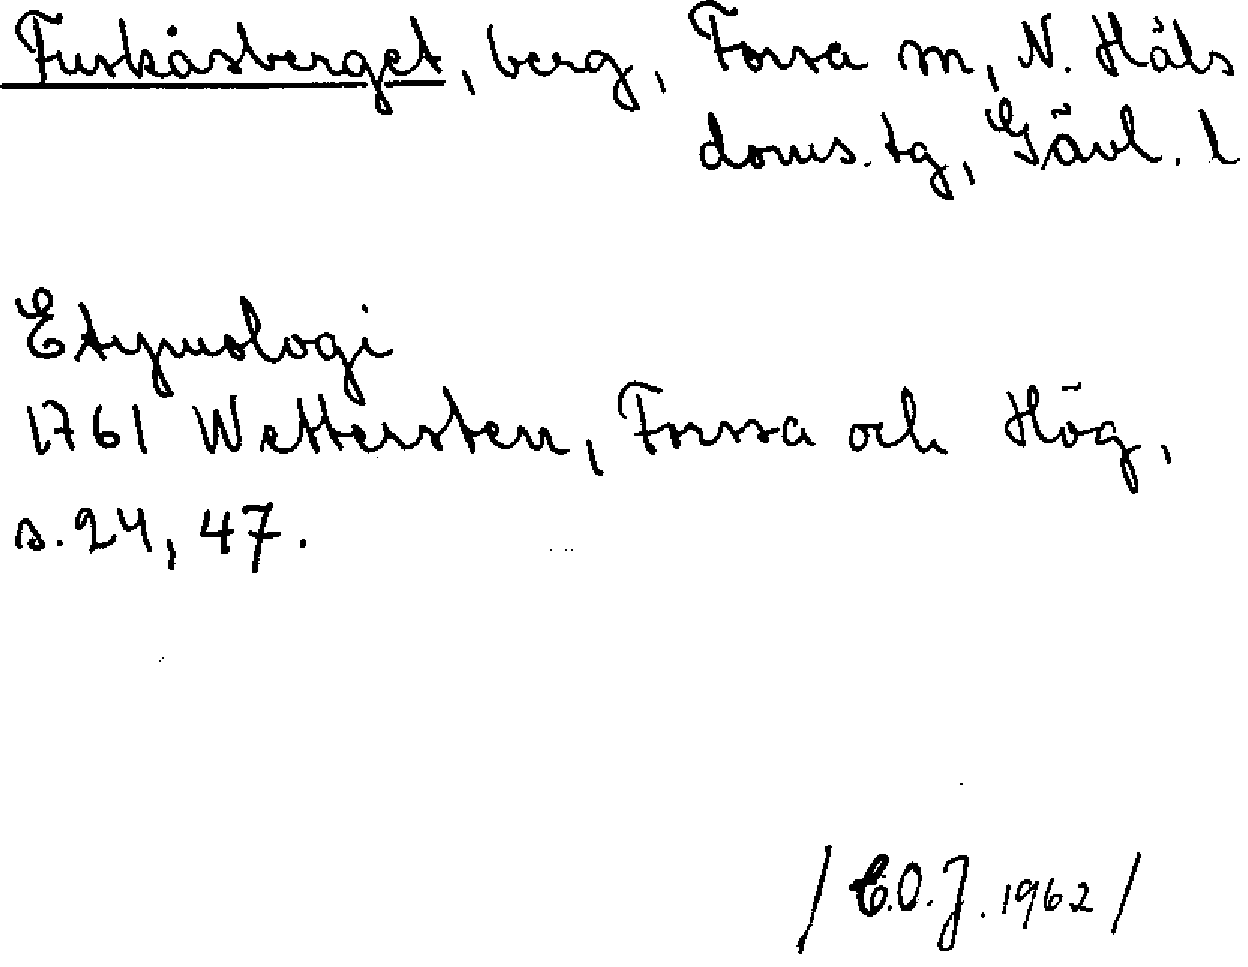 Fuskåsberget, berg, Forsa sn, N. Häls
doms.tg, Gävl. l
Etymologi
1761 Wettersten, Forssa och Hög,
s. 24, 47.
/C.O.J. 1962/